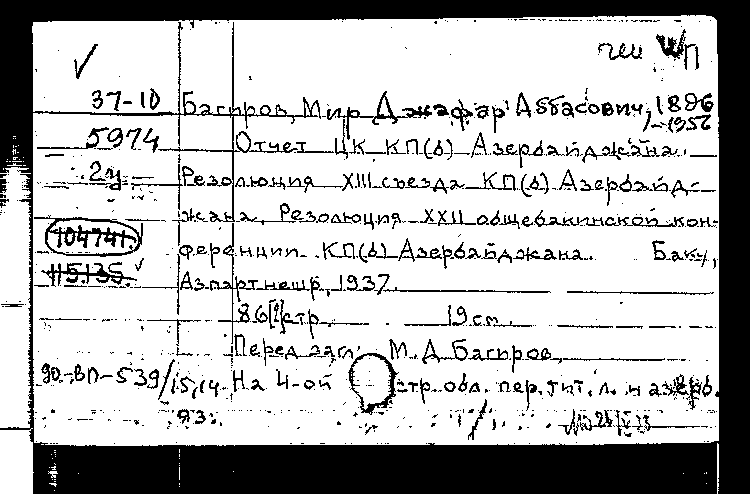 ✓
37-10 Багиров, Мир Джафар Аббасович, 1896
-1956
5974 Отчет ЦК КП(б) Азербайджана.
2ч Резолюция XIII съезда КП(б) Азербайд-
жана. Резолюция XXII общебакинской кон-
104741. ференции КП(б) Азербайджана. Баку,
115135. Азпартнешр, 1937.
86[?]стр. 19 см.
Перед загл: М. Д. Багиров.
90-ВП-539/15,14. На 4-ой стр. обл. пер. тит. л. на азерб.
яз.